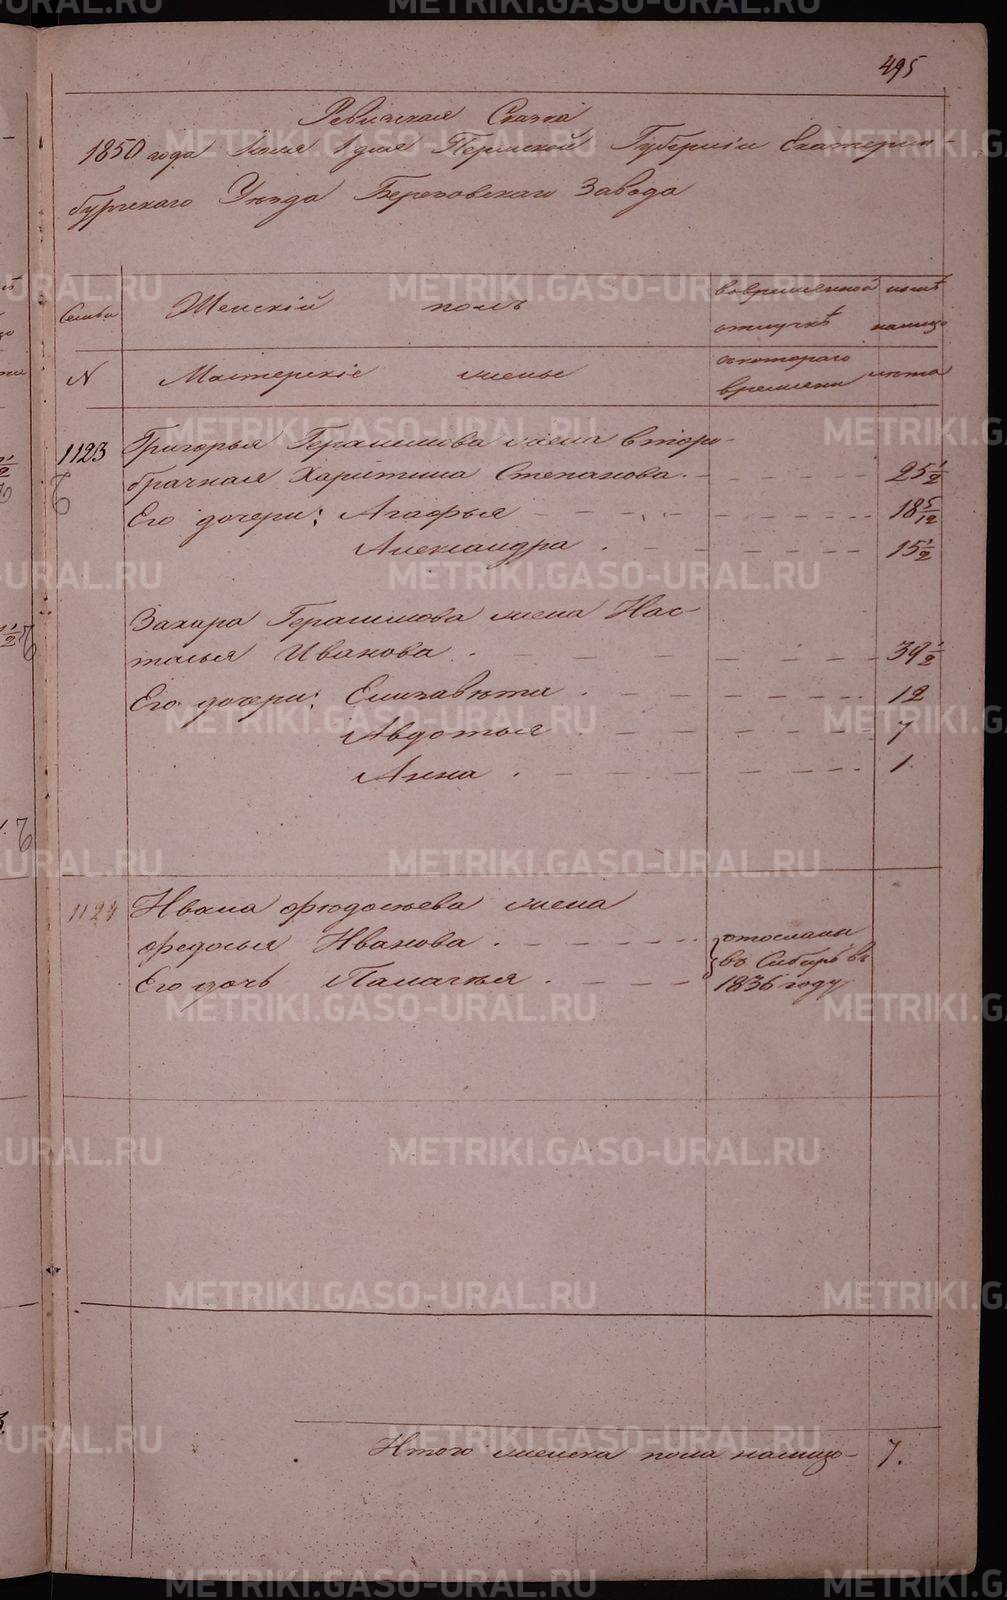 495
Ревизская Сказка
1850 года Июля 1 дня Пермской Губернiи Екатерин-
бургскаго Уѣзда Березовскаго Завода
Семьи
Женскiй полъ
во временной отлучкѣ
нынѣ налицо
N
Мастерскiе
съ котораго времени
лѣта
1123
Григорья Герасимова жена второ-
брачная Харитина Степанова. 25 1/2
Его дочери: Агафья 18 5/12
Александра . 15 1/2
Захара Герасимова жена Нас-
тасья Иванова . 39 1/2
Его дочери: Елизавѣта . 12
Авдотья 7
Анна . 1.
1124
Ивана Федосѣева жена
Федосья Иванова .
Его дочь Палагѣя .
отосланы
въ Сибирь въ
1836 году
Итого женска пола налицо- 7.
METRIKI.GASO-URAL.RU